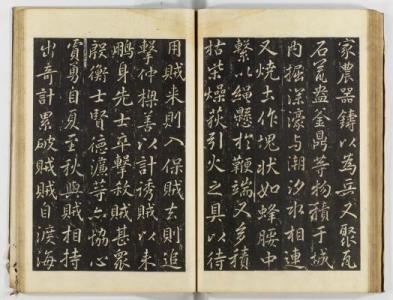 家農器鑄以為兵又聚瓦
石荖盎釜鼎等物積于城
內掘深濠与潮汐水相連
又燒土作塊狀如蜂腰中
繫以繩懸於鞭端又多積
枯柴燥荻引火之具以待
用賊来則入保賊去則追
擊仲㮣善以計誘賊以来
鵬身先士卒擊殺賊甚衆
殷衡士賢德濂等亦協心
賈勇自夏至秋與賊相持
出奇計累破賊賊自渡海